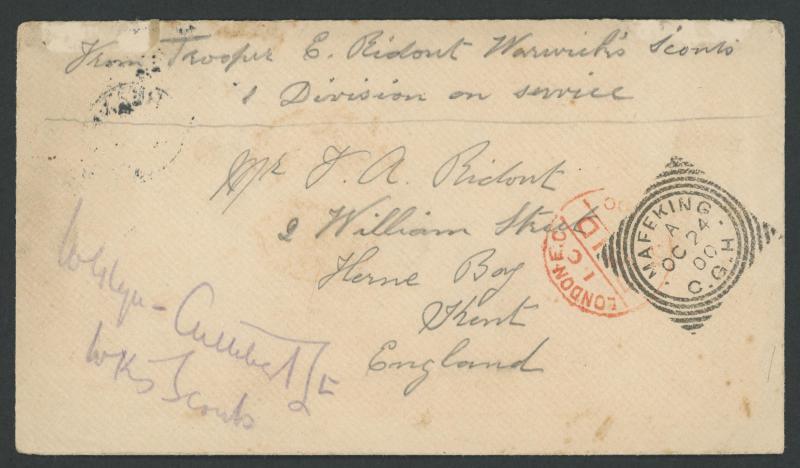 From Trooper E. Ridout Warwick's Scouts
1 Division on service
Mr F. A. Ridout
2 William Street
Herne Bay
Kent
England
Wks Scouts
LONDON.E.C.
MAFEKING · C.G.H.
A
OC 24
00